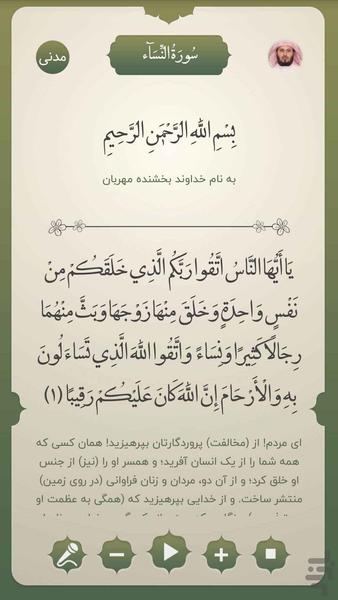 سُورَةُ النِّسَآء
مدنی
بِسْمِ اللَّهِ الرَّحْمَٰنِ الرَّحِيمِ
به نام خداوند بخشنده مهربان
يَا أَيُّهَا النَّاسُ اتَّقُوا رَبَّكُمُ الَّذِي خَلَقَكُمْ مِنْ
نَفْسٍ وَاحِدَةٍ وَخَلَقَ مِنْهَا زَوْجَهَا وَبَثَّ مِنْهُمَا
رِجَالًا كَثِيرًا وَنِسَاءً وَاتَّقُوا اللَّهَ الَّذِي تَسَاءَلُونَ
بِهِ وَالْأَرْحَامَ إِنَّ اللَّهَ كَانَ عَلَيْكُمْ رَقِيبًا (۱)
ای مردم! از (مخالفت) پروردگارتان بپرهیزید! همان کسی که
همه شما را از یک انسان آفرید؛ و همسر او را (نیز) از جنس
او خلق کرد؛ و از آن دو، مردان و زنان فراوانی (در روی زمین)
منتشر ساخت. و از خدایی بپرهیزید که (همگی به عظمت او